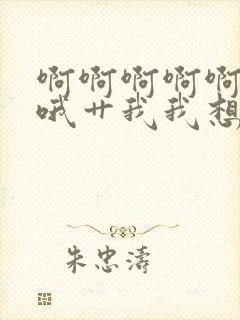 啊啊啊啊啊
哦卄我我想
朱忠濤